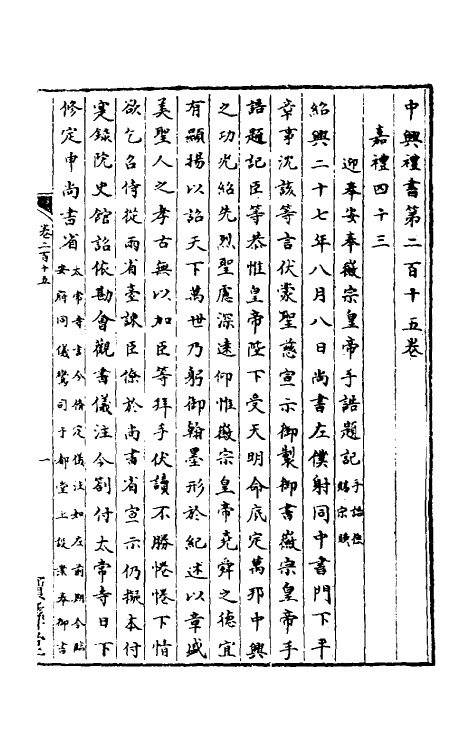 中興禮書第二百十五卷
嘉禮四十三
迎奉安奉徽宗皇帝手詔題記
紹興二十七年八月八日尚書左僕射同中書門下平
章事沈該等言伏蒙聖慈宣示御製御書徽宗皇帝手
詔題記臣等恭惟皇帝陛下受天明命底定萬邦中興
之功光紹先烈聖慮深遠仰惟徽宗皇帝堯舜之德宜
有顯揚以詔天下萬世乃躬御翰墨形於紀述以章盛
美聖人之孝古無以加臣等拜手伏讀不勝惓惓下情
欲乞召侍從兩省臺諫臣僚於尚書省宣示仍擬本付
寔錄院史館詔依勘會觀書儀注今劄付太常寺日下
修定申尚書省太常寺言今脩定儀注如左前期令臨
安府同儀鸞司于都堂上設案奉御書
卷二百十五
一